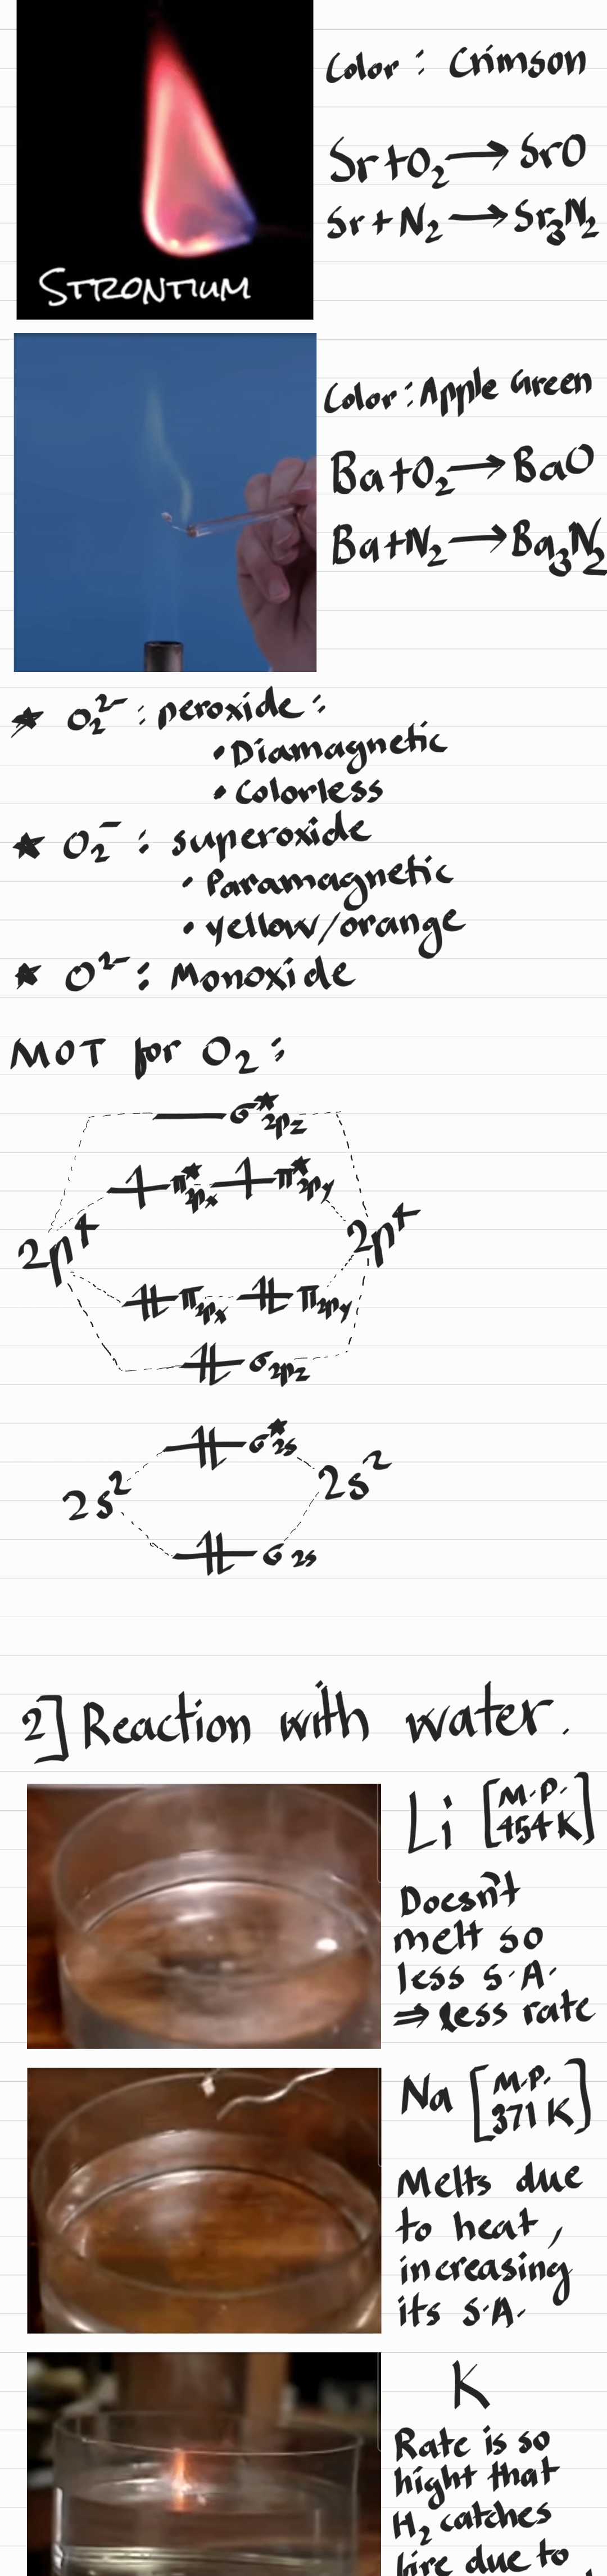 Color : Crimson
Sr+O₂→SrO
Sr+N₂→Sr₃N₂
STRONTIUM
Color : Apple Green
Ba+O₂→BaO
Ba+N₂→Ba₃N₂
★ O₂²⁻ : peroxide :
• Diamagnetic
• Colorless
★ O₂⁻ : superoxide
• Paramagnetic
• yellow/orange
★ O²⁻ : Monoxide
MOT for O₂ :
σ*2pz
π*2px π*2py
2p⁴ 2p⁴
π2px π2py
σ2pz
σ*2s
2s² 2s²
σ2s
2] Reaction with water.
Li [M.P. 454K]
Doesn't
melt so
less S.A.
⇒ less rate
Na [M.P. 371K]
Melts due
to heat,
increasing
its S.A.
K
Rate is so
hight that
H₂ catches
fire due to